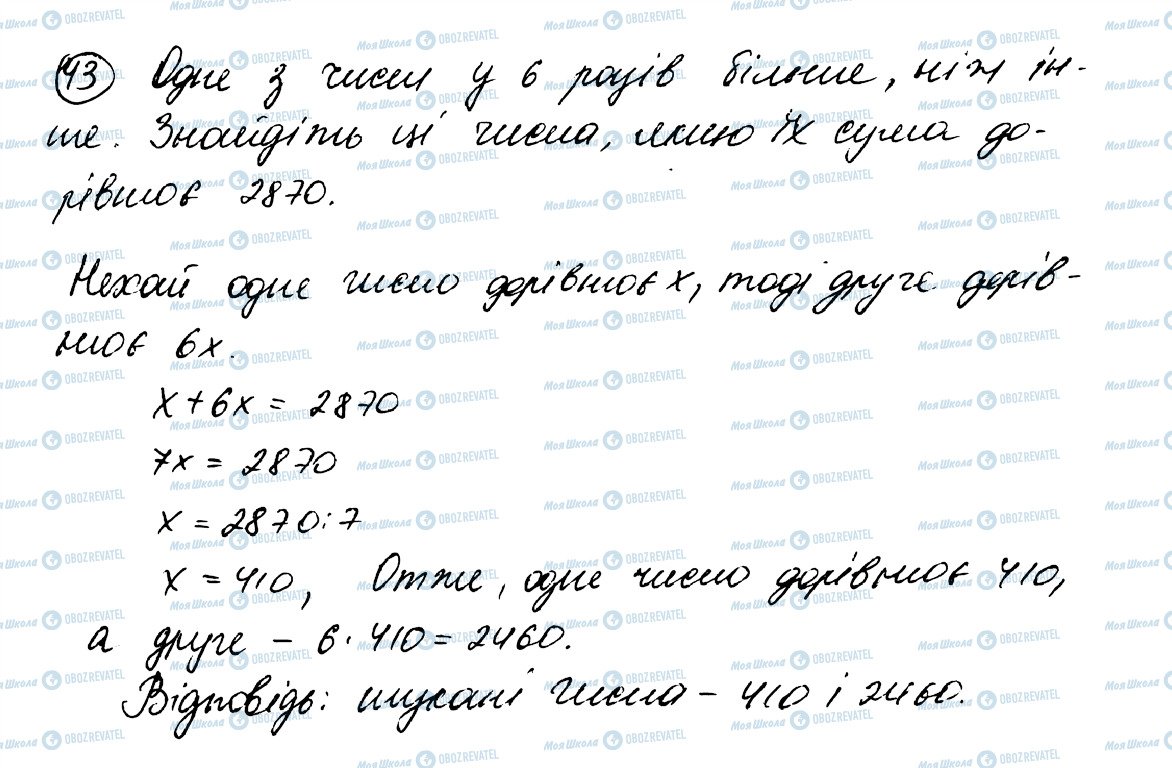 43 Одне з чисел у 6 разів більше, ніж ін-
ше. Знайдіть ці числа, якщо їх сума до-
рівнює 2870.
Нехай одне число дорівнює x, тоді друге дорів-
нює 6x.
x + 6x = 2870
7x = 2870
x = 2870 : 7
x = 410, Отже, одне число дорівнює 410,
а друге – 6 · 410 = 2460.
Відповідь: шукані числа – 410 і 2460.